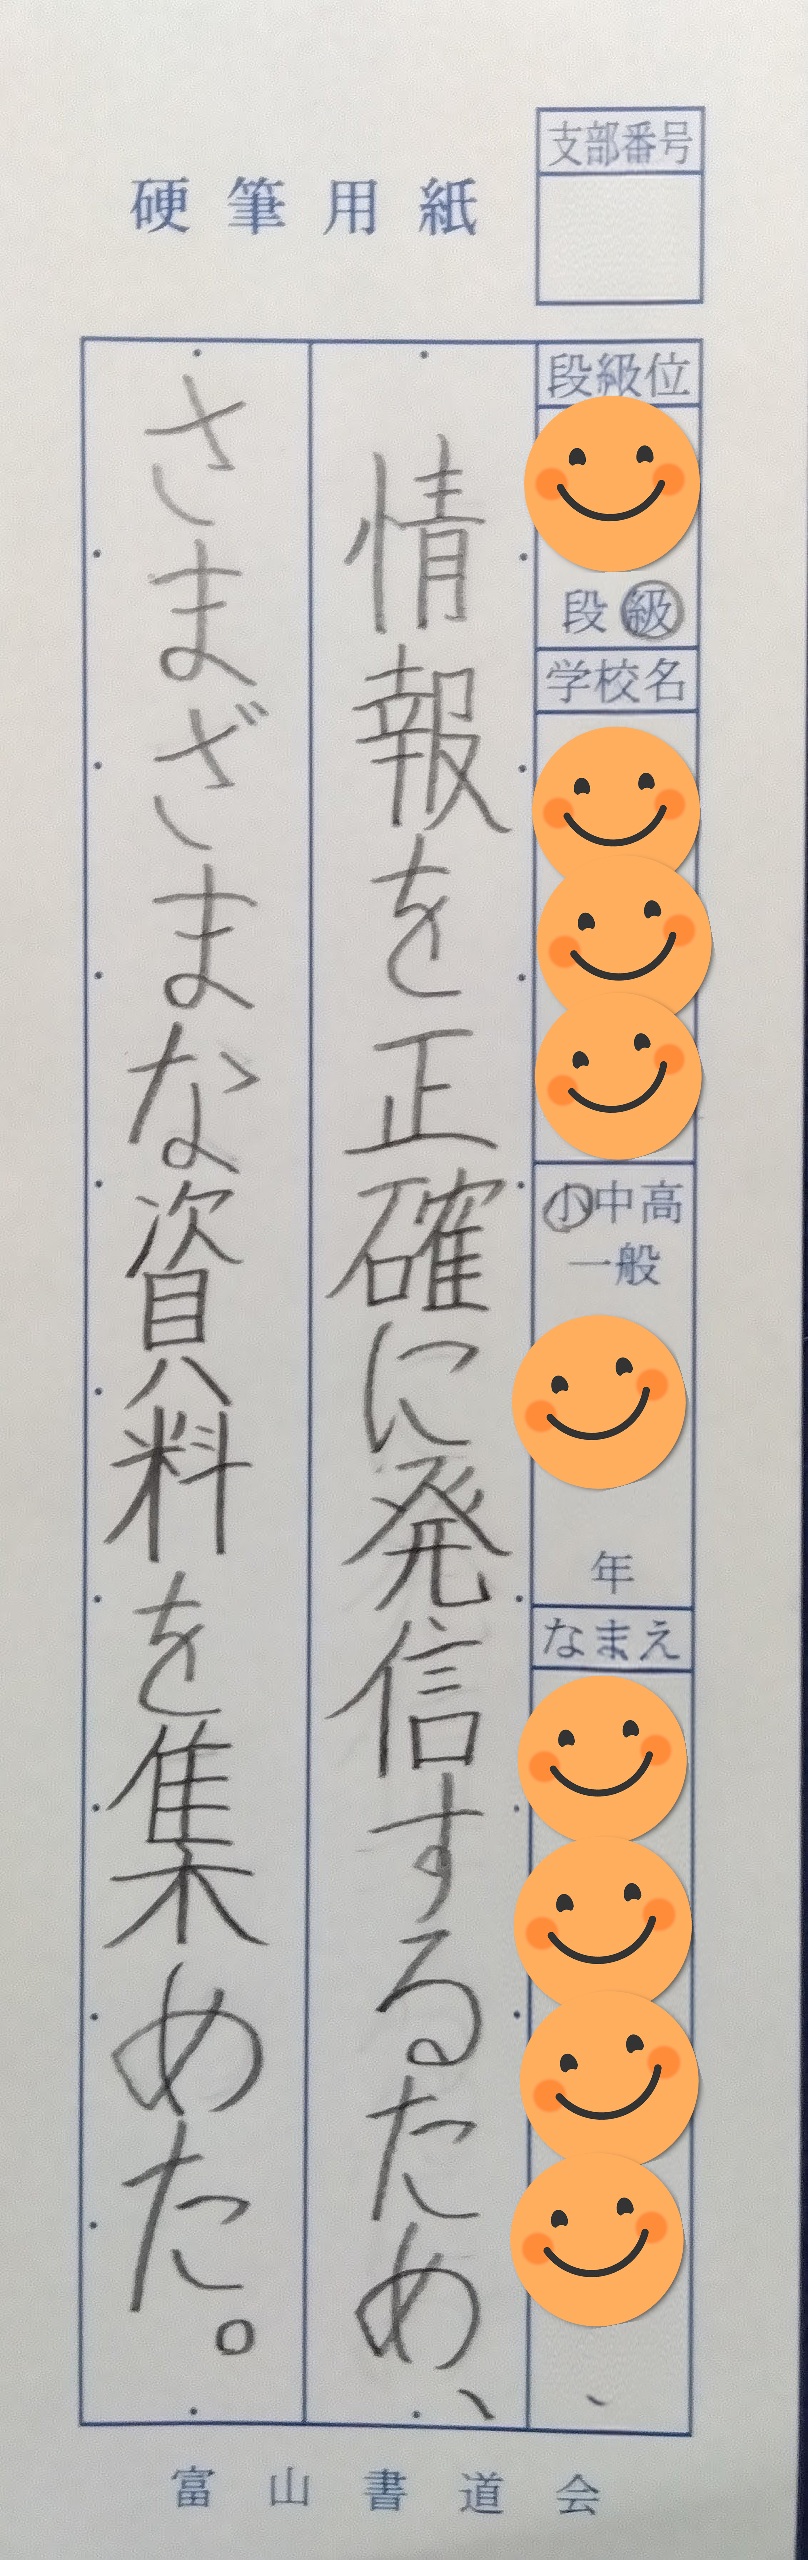 硬筆用紙
支部番号
段級位
段級
学校名
小中高
一般
年
なまえ
情報を正確に発信するため、
さまざまな資料を集めた。
富山書道会